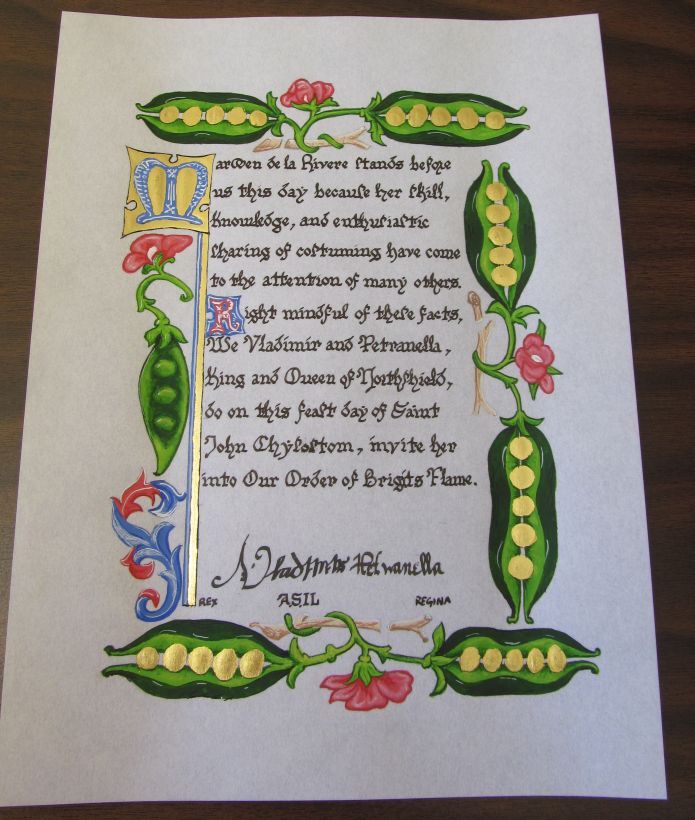 Marwen de la Rivere stands before
us this day because her skill,
knowledge, and enthusiastic
sharing of costuming have come
to the attention of many others.
Right mindful of these facts,
We Vladimir and Petranella,
King and Queen of Northshield,
do on this feast day of Saint
John Chysostom, invite her
into Our Order of Brigits Flame.
Petranella
REX A.S.IL REGINA